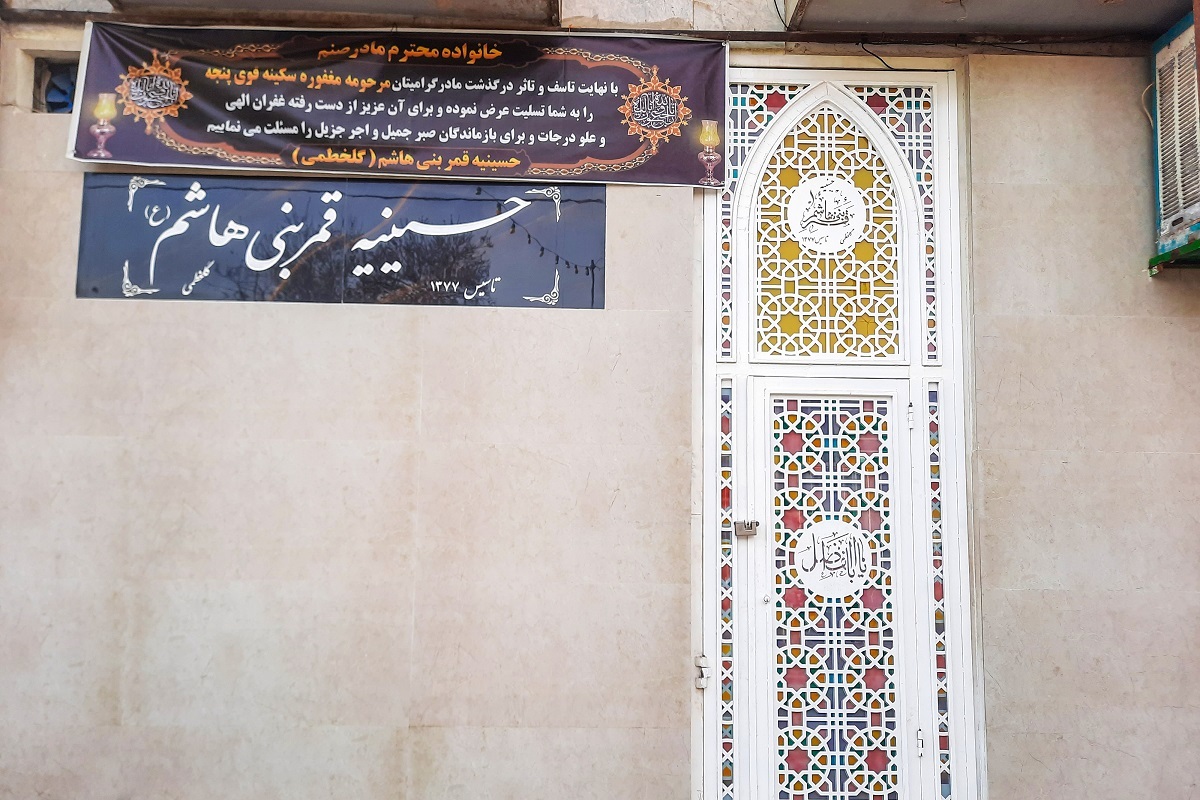 خانواده محترم مادرصنم
با نهایت تاسف و تاثر درگذشت مادرگرامیتان مرحومه مغفوره سکینه قوی پنجه
را به شما تسلیت عرض نموده و برای آن عزیز از دست رفته غفران الهی
و علو درجات و برای بازماندگان صبر جمیل و اجر جزیل را مسئلت می نماییم
حسینیه قمر بنی هاشم (گلخطمی)
حسینیه قمر بنی هاشم (ع)
تاسیس ۱۳۷۷
گلخطمی
حسینیه
قمر بنی هاشم
تاسیس ۱۳۷۷
گلخطمی
یا اباالفضل